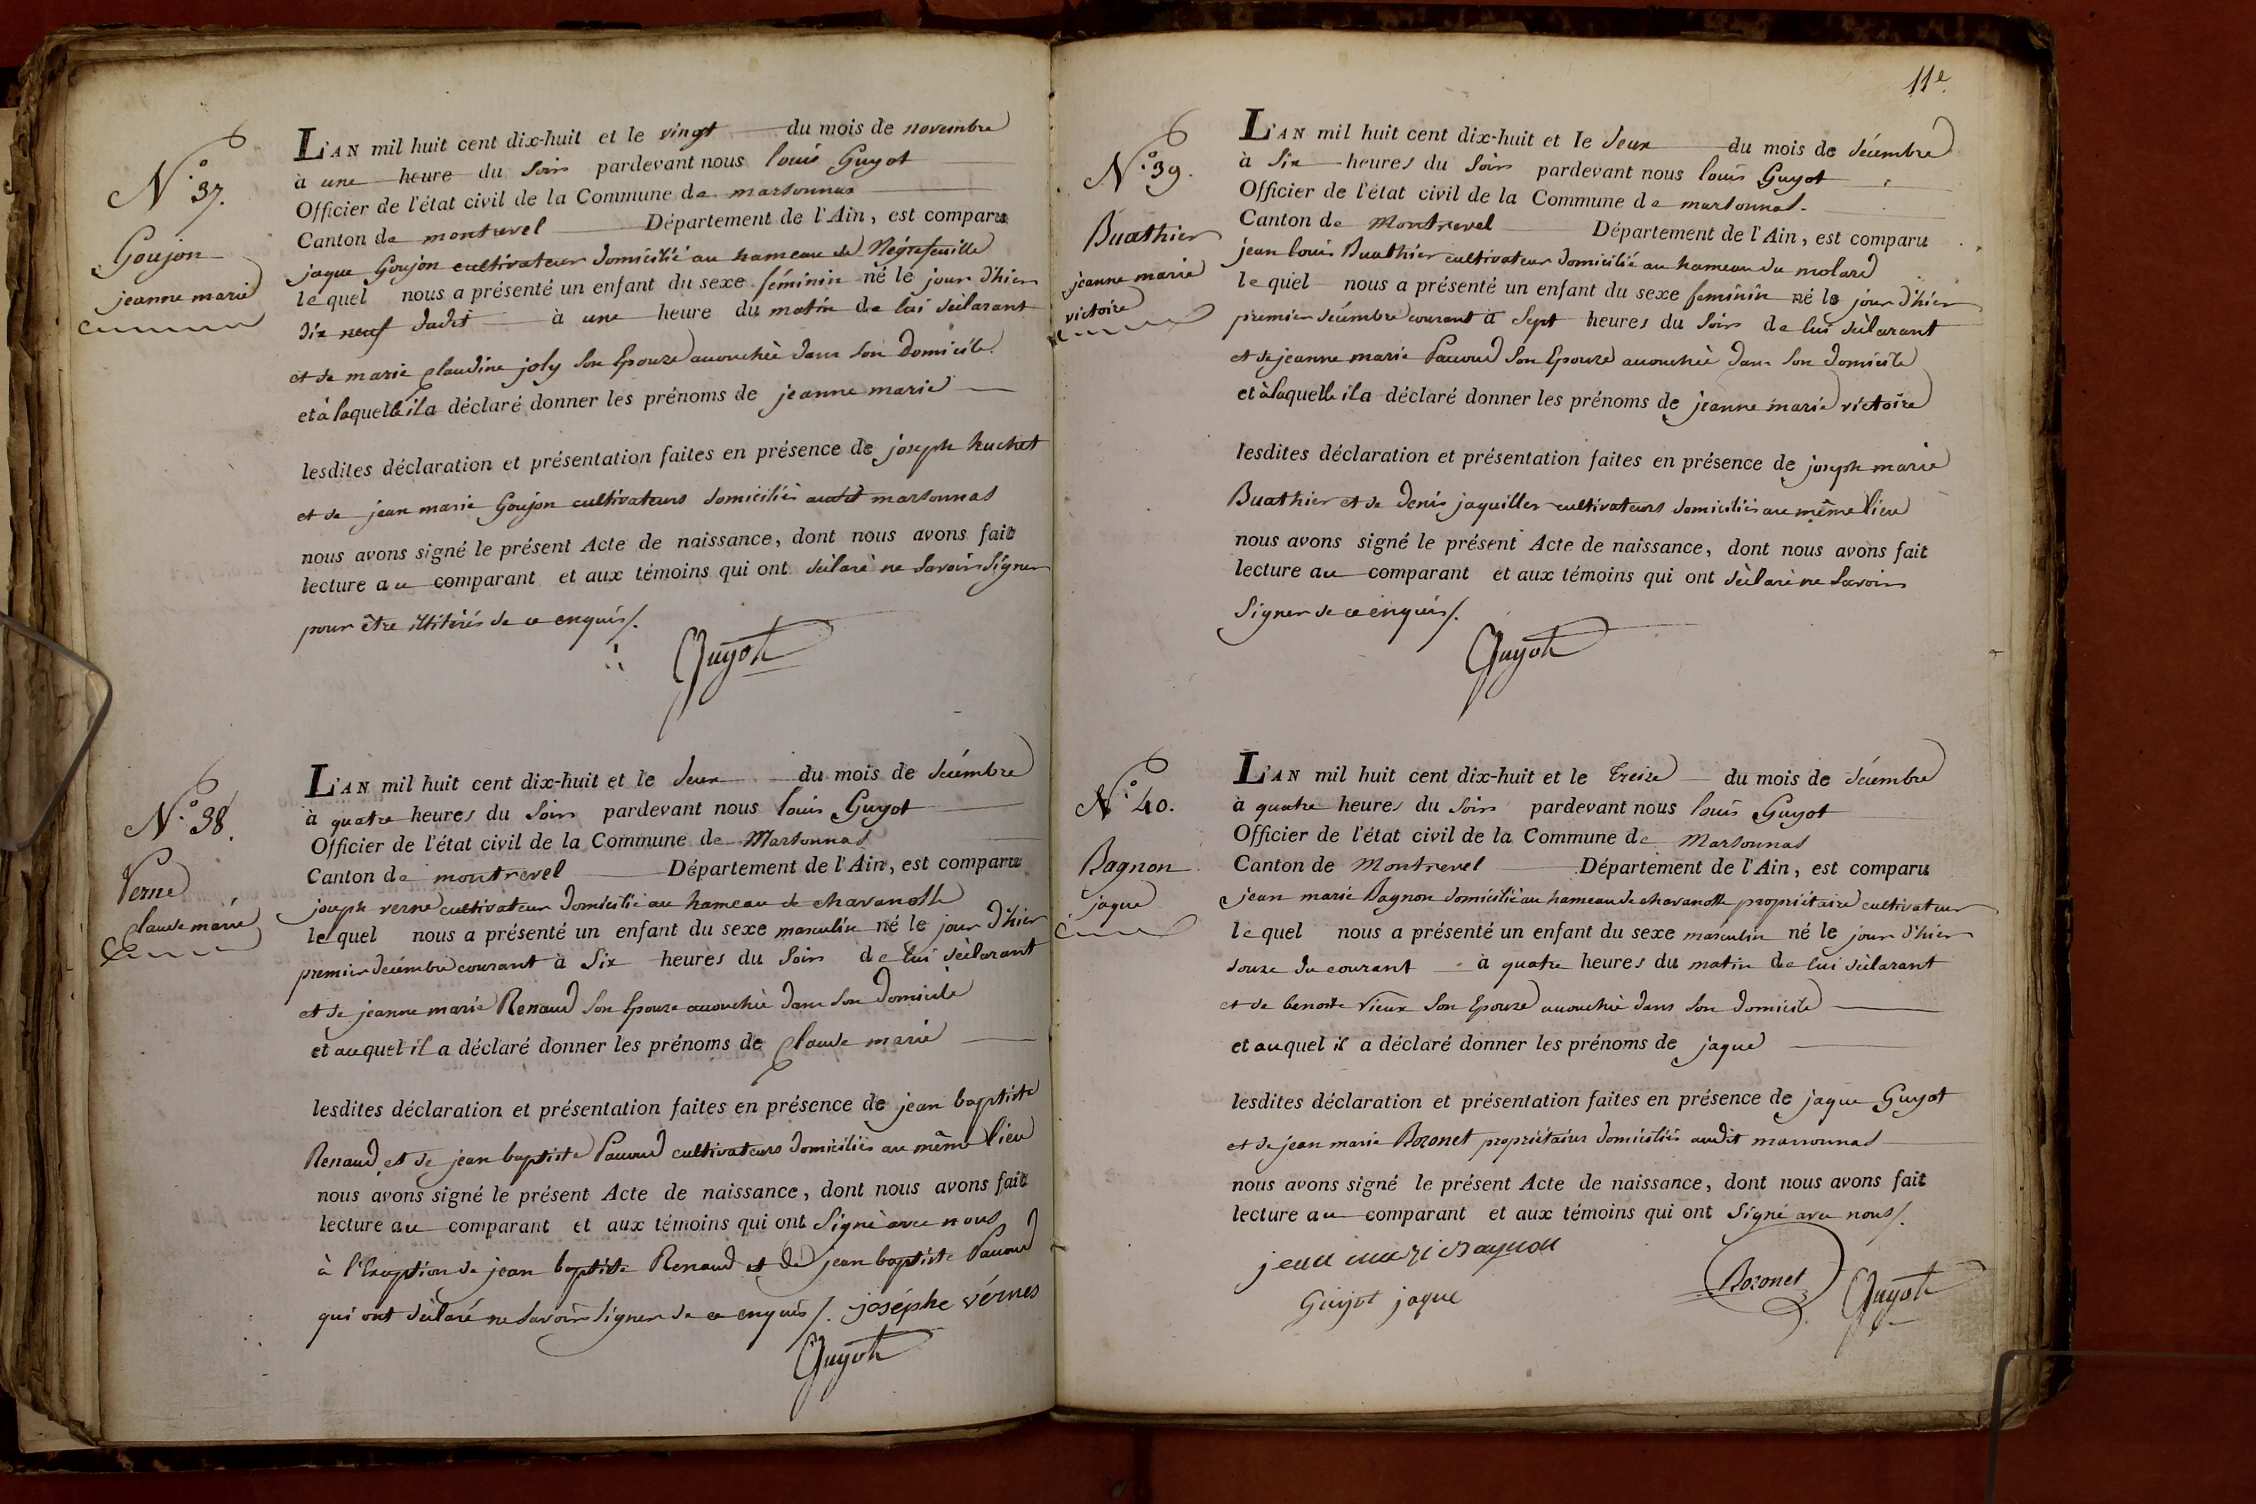 N.° 37.
Goujon
jeanne marie
L'AN mil huit cent dix-huit et le vingt du mois de novembre
à une heure du soir pardevant nous louis Guyot
Officier de l'état civil de la Commune de marsonnas
Canton de montrevel Département de l'Ain, est comparu
jaque Goujon cultivateur domicilié au hameau de Négrefeuille
lequel nous a présenté un enfant du sexe féminin né le jour d'hier
dix neuf dudit à une heure du matin de lui déclarant
et de marie claudine joly son Epouze accouchée dans son Domicile
et à laquelle il a déclaré donner les prénoms de jeanne marie
lesdites déclaration et présentation faites en présence de joseph huchet
et de jean marie Goujon cultivateurs domiciliés audit marsonnas
nous avons signé le présent Acte de naissance, dont nous avons fait
lecture au comparant et aux témoins qui ont déclaré ne savoir signer
pour être illitérés de ce enquis/.
Guyot
N.° 38.
Verne
claude marie
L'AN mil huit cent dix-huit et le deux du mois de décembre
à quatre heures du soir pardevant nous louis Guyot
Officier de l'état civil de la Commune de Marsonnas
Canton de montrevel Département de l'Ain, est comparu
joseph verne cultivateur domicilié au hameau de chavanolle
lequel nous a présenté un enfant du sexe masculin né le jour d'hier
premier décembre courant à Six heures du Soir de lui déclarant
et de jeanne marie Renaud son Epouze accouchée dans son domicile
et auquel il a déclaré donner les prénoms de claude marie
lesdites déclaration et présentation faites en présence de jean baptiste
Renaud et de jean baptiste Pauoud cultivateurs domiciliés au même lieu
nous avons signé le présent Acte de naissance, dont nous avons fait
lecture au comparant et aux témoins qui ont signé avec nous
à l'Exception de jean baptiste Renaud et de jean baptiste Pauoud
qui ont déclaré ne savoir signer de ce enquis/. joséphe vérnes
Guyot
11e.
N.° 39.
Buathier
jeanne marie
victoire
L'AN mil huit cent dix-huit et le deux du mois de décembre
à Six heures du soir pardevant nous louis Guyot
Officier de l'état civil de la Commune de marsonnas.
Canton de Montrevel Département de l'Ain, est comparu
jean louis Buathier cultivateur domicilié au hameau du molard
lequel nous a présenté un enfant du sexe feminin né le jour d'hier
premier décembre courant à Sept heures du Soir de lui déclarant
et de jeanne marie Pauoud son Epouze accouchée dans son domicile
et à laquelle il a déclaré donner les prénoms de jeanne marie victoire
lesdites déclaration et présentation faites en présence de joseph marie
Buathier et de Denis jaquiller cultivateurs domiciliés au même lieu
nous avons signé le présent Acte de naissance, dont nous avons fait
lecture au comparant et aux témoins qui ont déclaré ne savoir
Signer de ce enquis/.
Guyot
N.° 40.
Bagnon
jaque
L'AN mil huit cent dix-huit et le treize du mois de décembre
à quatre heures du soir pardevant nous louis Guyot
Officier de l'état civil de la Commune de Marsonnas
Canton de Montrevel Département de l'Ain, est comparu
jean marie Bagnon domicilié au hameau de chavanolle propriétaire cultivateur
lequel nous a présenté un enfant du sexe masculin né le jour d'hier
douze du courant à quatre heures du matin de lui déclarant
et de benoite vieux son Epouze accouchée dans son domicile
et auquel il a déclaré donner les prénoms de jaque
lesdites déclaration et présentation faites en présence de jaque Guyot
et de jean marie Bozonet propriétaires domiciliés audit marsonnas
nous avons signé le présent Acte de naissance, dont nous avons fait
lecture au comparant et aux témoins qui ont signé avec nous/.
jean mari bagnon
Bozonet
Guyot jaque
Guyot